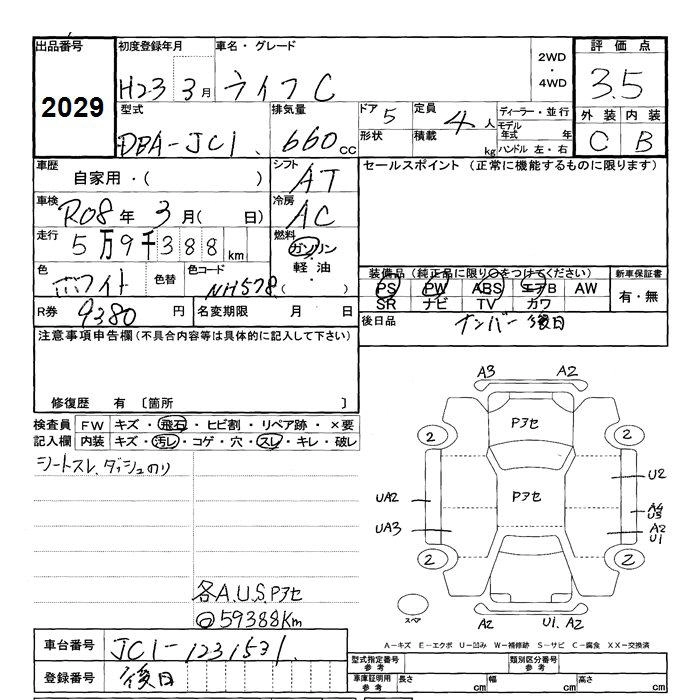 出品番号 初度登録年月 車名・グレード 2WD・4WD 評価点
2029 H23 3月 ライフ C 3.5
型式 排気量 ドア 5 定員 4人 ディーラー・並行 外装 内装
DBA-JC1 660cc 形状 積載 kg モデル年式 年 C B
ハンドル 左・右
車歴 シフト セールスポイント (正常に機能するものに限ります)
自家用・( ) AT
車検 冷房
R08年 3月( 日) AC
走行 燃料
5万9千388km ガソリン・軽油・( )
色 色替 色コード 装備品(純正品に限り○をつけてください) 新車保証書
ホワイト NH578 PS PW ABS エアB AW 有・無
SR ナビ TV カワ
R券 9380円 名変期限 月 日 後日品 ナンバー後日
注意事項申告欄(不具合内容等は具体的に記入して下さい)
修復歴 有 〔箇所 〕
検査員 FW キズ・飛石・ヒビ割・リペア跡・×要
記入欄 内装 キズ・汚レ・コゲ・穴・スレ・キレ・破レ
シートスレ、ダッシュのり
A3 A2
Pアセ
2 2
U2
Pアセ
UA2 A4
U3
UA3 A2
U1
2 2
各A.U.S Pアセ
@59388Km
スペア A2 U1. A2
車台番号 JC1-1231531
A−キズ E−エクボ U−凹み W−補修跡 S−サビ C−腐食 XX−交換済
登録番号 後日
型式指定番号 参考 類別区分番号 参考
車庫証明用 参考 長さ cm 幅 cm 高さ cm